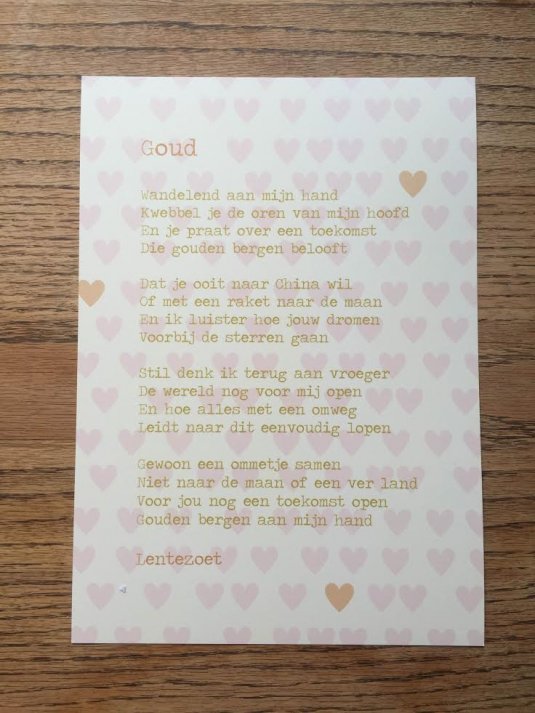 Goud
Wandelend aan mijn hand
Kwebbel je de oren van mijn hoofd
En je praat over een toekomst
Die gouden bergen belooft
Dat je ooit naar China wil
Of met een raket naar de maan
En ik luister hoe jouw dromen
Voorbij de sterren gaan
Stil denk ik terug aan vroeger
De wereld nog voor mij open
En hoe alles met een omweg
Leidt naar dit eenvoudig lopen
Gewoon een ommetje samen
Niet naar de maan of een ver land
Voor jou nog een toekomst open
Gouden bergen aan mijn hand
Lentezoet